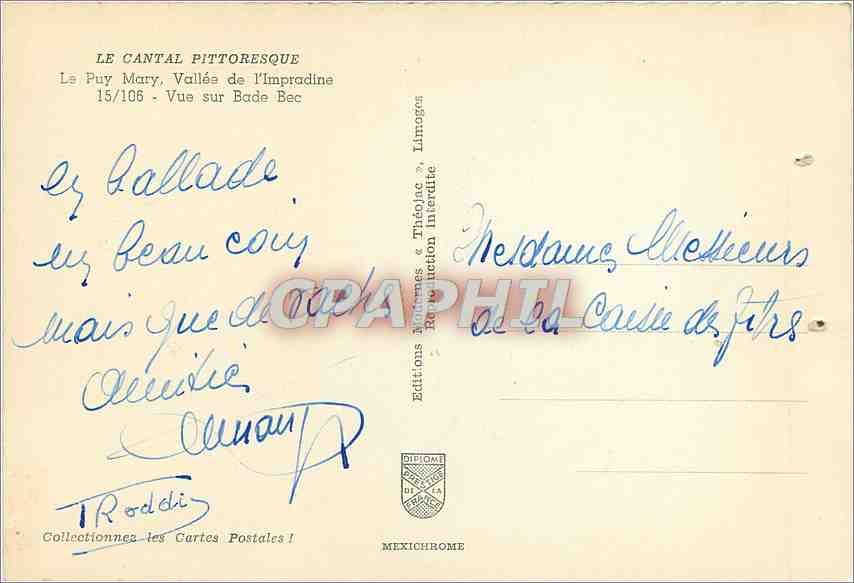 LE CANTAL PITTORESQUE
Le Puy Mary, Vallée de l'Impradine
15/106 - Vue sur Bade Bec
en ballade
en beau coin
mais que de vaches
Amitiés
T Roddi
Collectionnez les Cartes Postales !
Editions Modernes « Théojac », Limoges
Reproduction interdite
CPAPHIL
DIPLOME
PRESTIGE
DE LA
FRANCE
MEXICHROME
Mesdames Messieurs
de la Caisse des Titres